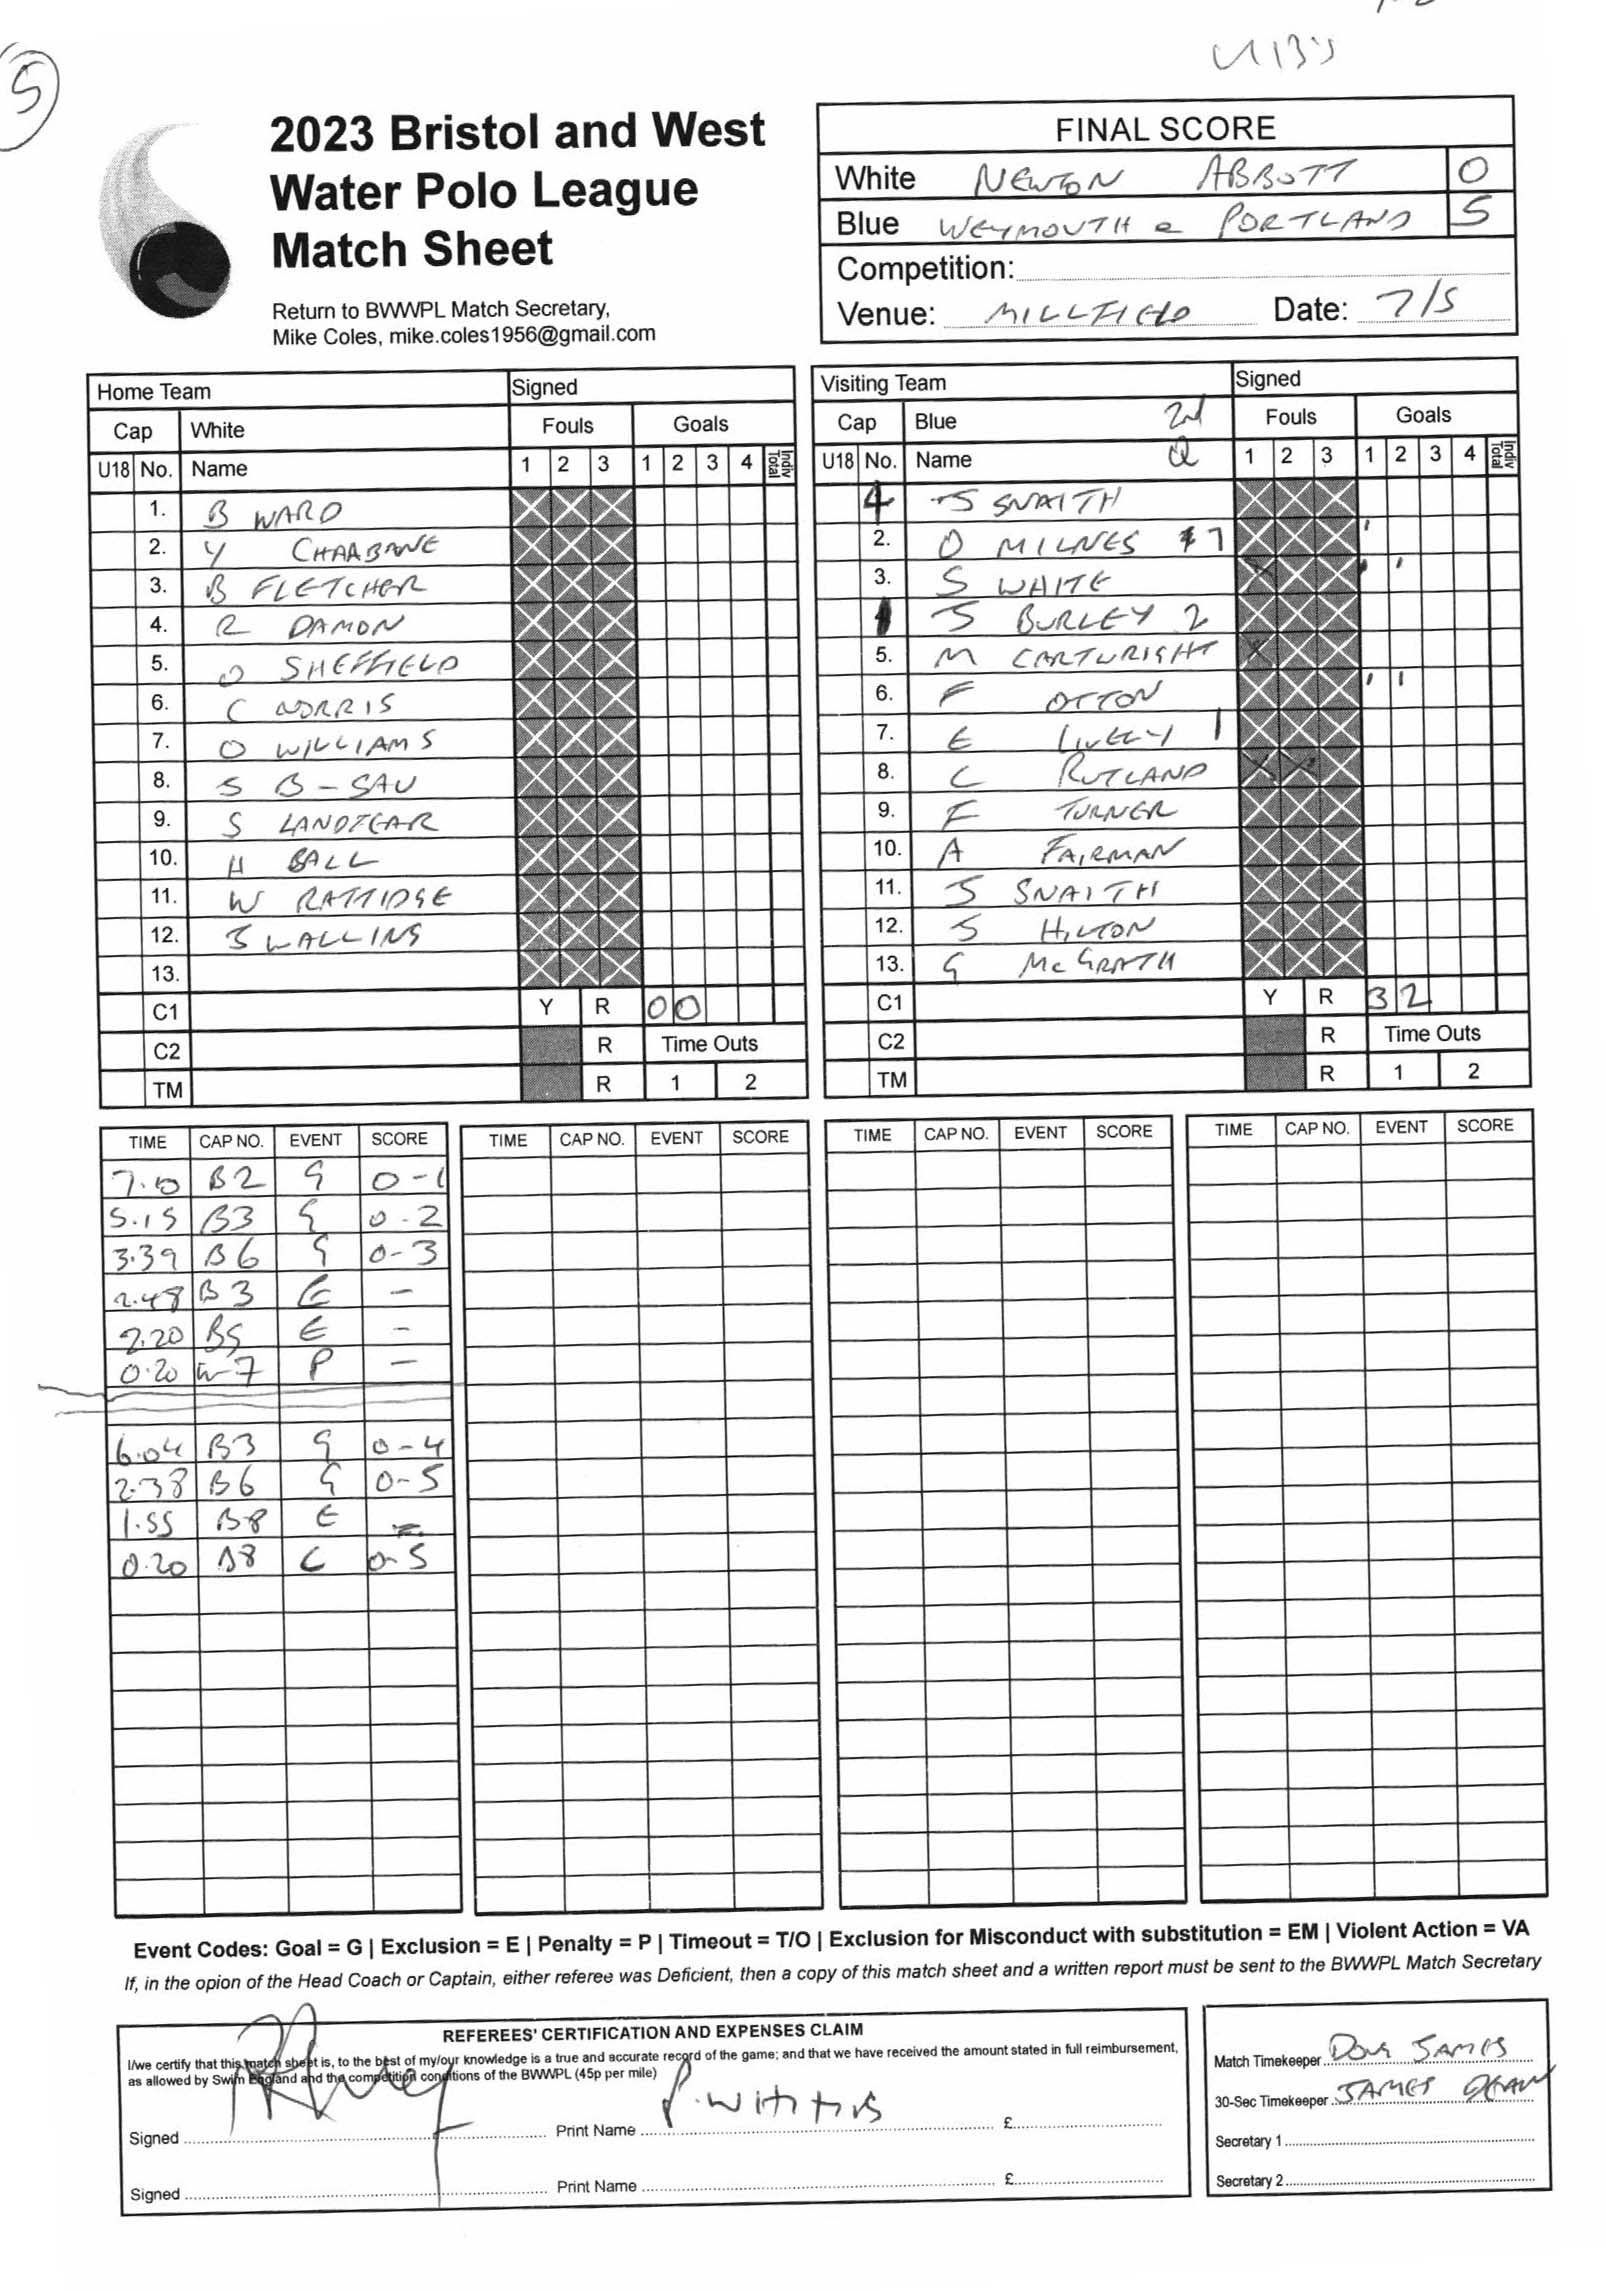 5
U13's
2023 Bristol and West
Water Polo League
Match Sheet
Return to BWWPL Match Secretary,
Mike Coles, mike.coles1956@gmail.com
FINAL SCORE
White NEWTON ABBOTT 0
Blue WEYMOUTH & PORTLAND 5
Competition:
Venue: MILLFIELD Date: 7/5
Home Team Signed
Cap White Fouls Goals
U18 No. Name 1 2 3 1 2 3 4 Indiv Total
1. B WARD
2. Y CHAABANE
3. B FLETCHER
4. R DAMON
5. O SHEFFIELD
6. C NORRIS
7. O WILLIAMS
8. S B-SAU
9. S LANDZEAR
10. H BALL
11. W RATTIDGE
12. J WALLING
13.
C1 Y R 0 0
C2 R Time Outs
TM R 1 2
Visiting Team Signed
Cap Blue 2nd Fouls Goals
U18 No. Name Q 1 2 3 1 2 3 4 Indiv Total
4 J SNAITH
2. O MILNES 7
3. S WHITE
1 J BURLEY 2
5. M CARTWRIGHT
6. F OTTON
7. E LIVELY 1
8. C RUTLAND
9. F TURNER
10. A FAIRMAN
11. J SNAITH
12. S HILTON
13. G McGRATH
C1 Y R 3 2
C2 R Time Outs
TM R 1 2
TIME CAP NO. EVENT SCORE TIME CAP NO. EVENT SCORE TIME CAP NO. EVENT SCORE TIME CAP NO. EVENT SCORE
7.10 B2 G 0-1
5.15 B3 G 0-2
3.39 B6 G 0-3
2.48 B3 E -
2.20 B5 E -
0.20 W7 P -
6.04 B3 G 0-4
2.38 B6 G 0-5
1.55 B8 E -
0.20 B8 E 0-5
Event Codes: Goal = G | Exclusion = E | Penalty = P | Timeout = T/O | Exclusion for Misconduct with substitution = EM | Violent Action = VA
If, in the opion of the Head Coach or Captain, either referee was Deficient, then a copy of this match sheet and a written report must be sent to the BWWPL Match Secretary
REFEREES' CERTIFICATION AND EXPENSES CLAIM
I/we certify that this match sheet is, to the best of my/our knowledge is a true and accurate record of the game; and that we have received the amount stated in full reimbursement,
as allowed by Swim England and the competition conditions of the BWWPL (45p per mile)
Signed Print Name P. £
Signed Print Name £
Match Timekeeper DOUG JAMES
30-Sec Timekeeper JAMES
Secretary 1
Secretary 2